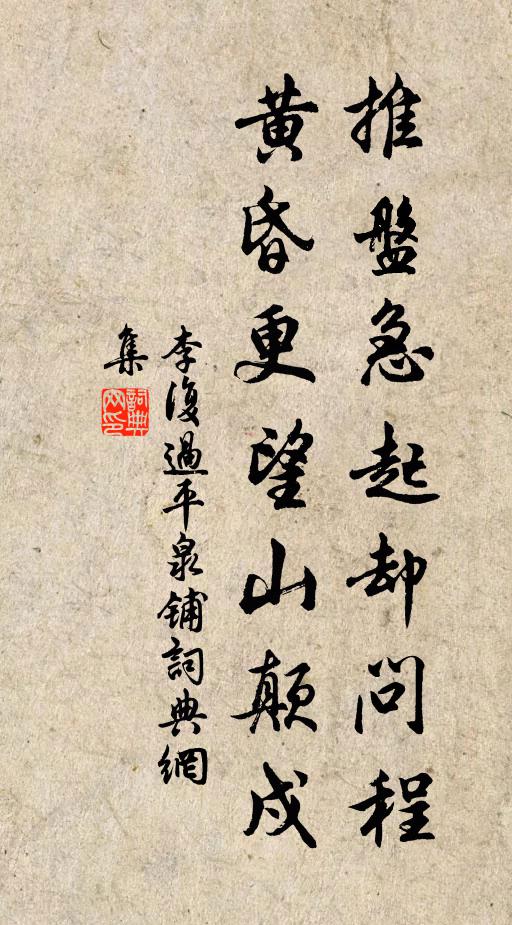 推盤急起却問程
黃昏更望山顛戍
李復過平泉鋪詞典網
集
詞典
网印